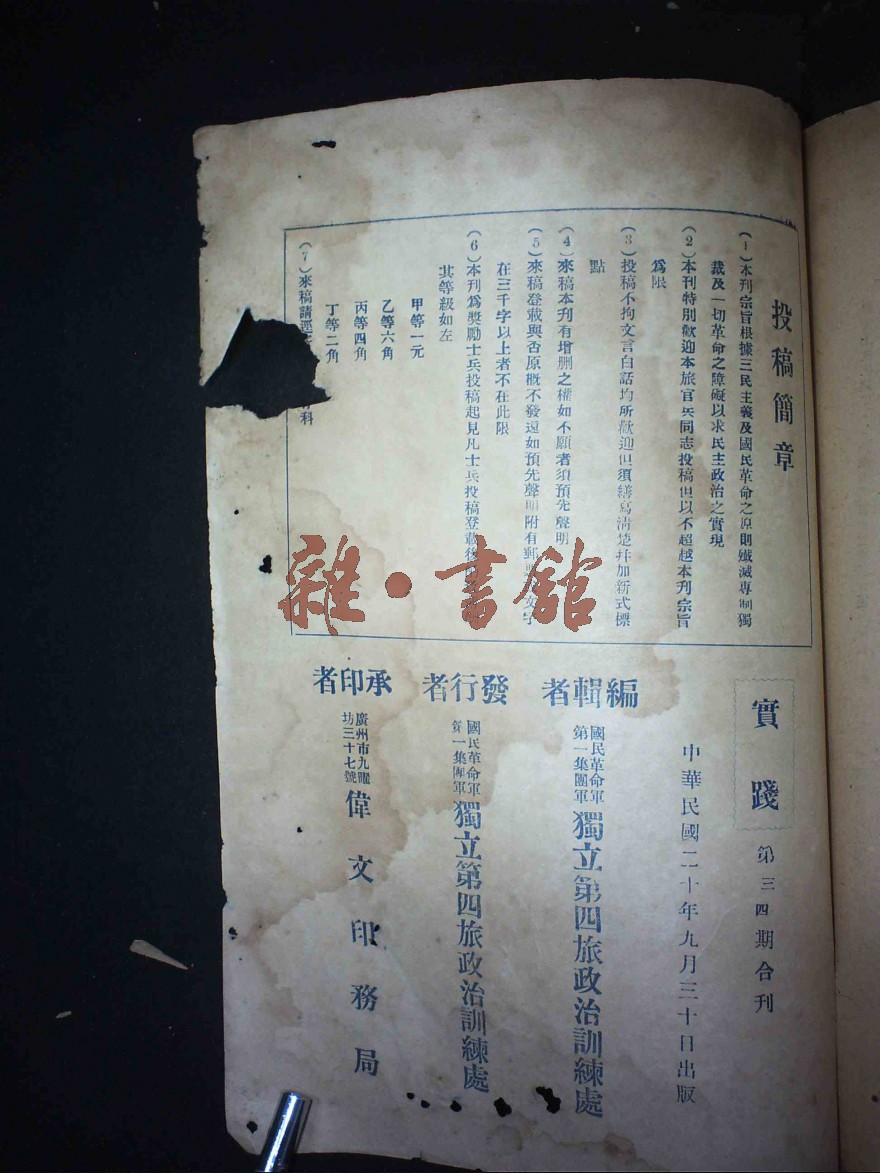 投稿簡章
(1)本刊宗旨根據三民主義及國民革命之原則殲滅專制獨
裁及一切革命之障礙以求民主政治之實現
(2)本刊特別歡迎本旅官兵同志投稿但以不超越本刊宗旨
爲限
(3)投稿不拘文言白話均所歡迎但須繕寫淸楚幷加新式標
點
(4)來稿本刊有增删之權如不願者須預先聲明
(5)來稿登載與否原概不發還如預先聲明附有郵 文字
在三千字以上者不在此限
(6)本刊爲獎勵士兵投稿起見凡士兵投稿登載後
其等級如左
甲等一元
乙等六角
丙等四角
丁等二角
(7)來稿請逕 科
實踐 第三四期合刊
中華民國二十年九月三十日出版
編輯者 國民革命軍第一集團軍 獨立第四旅政治訓練處
發行者 國民革命軍第一集團軍 獨立第四旅政治訓練處
承印者 廣州市九曜坊三十七號 偉文印務局
雜·書館